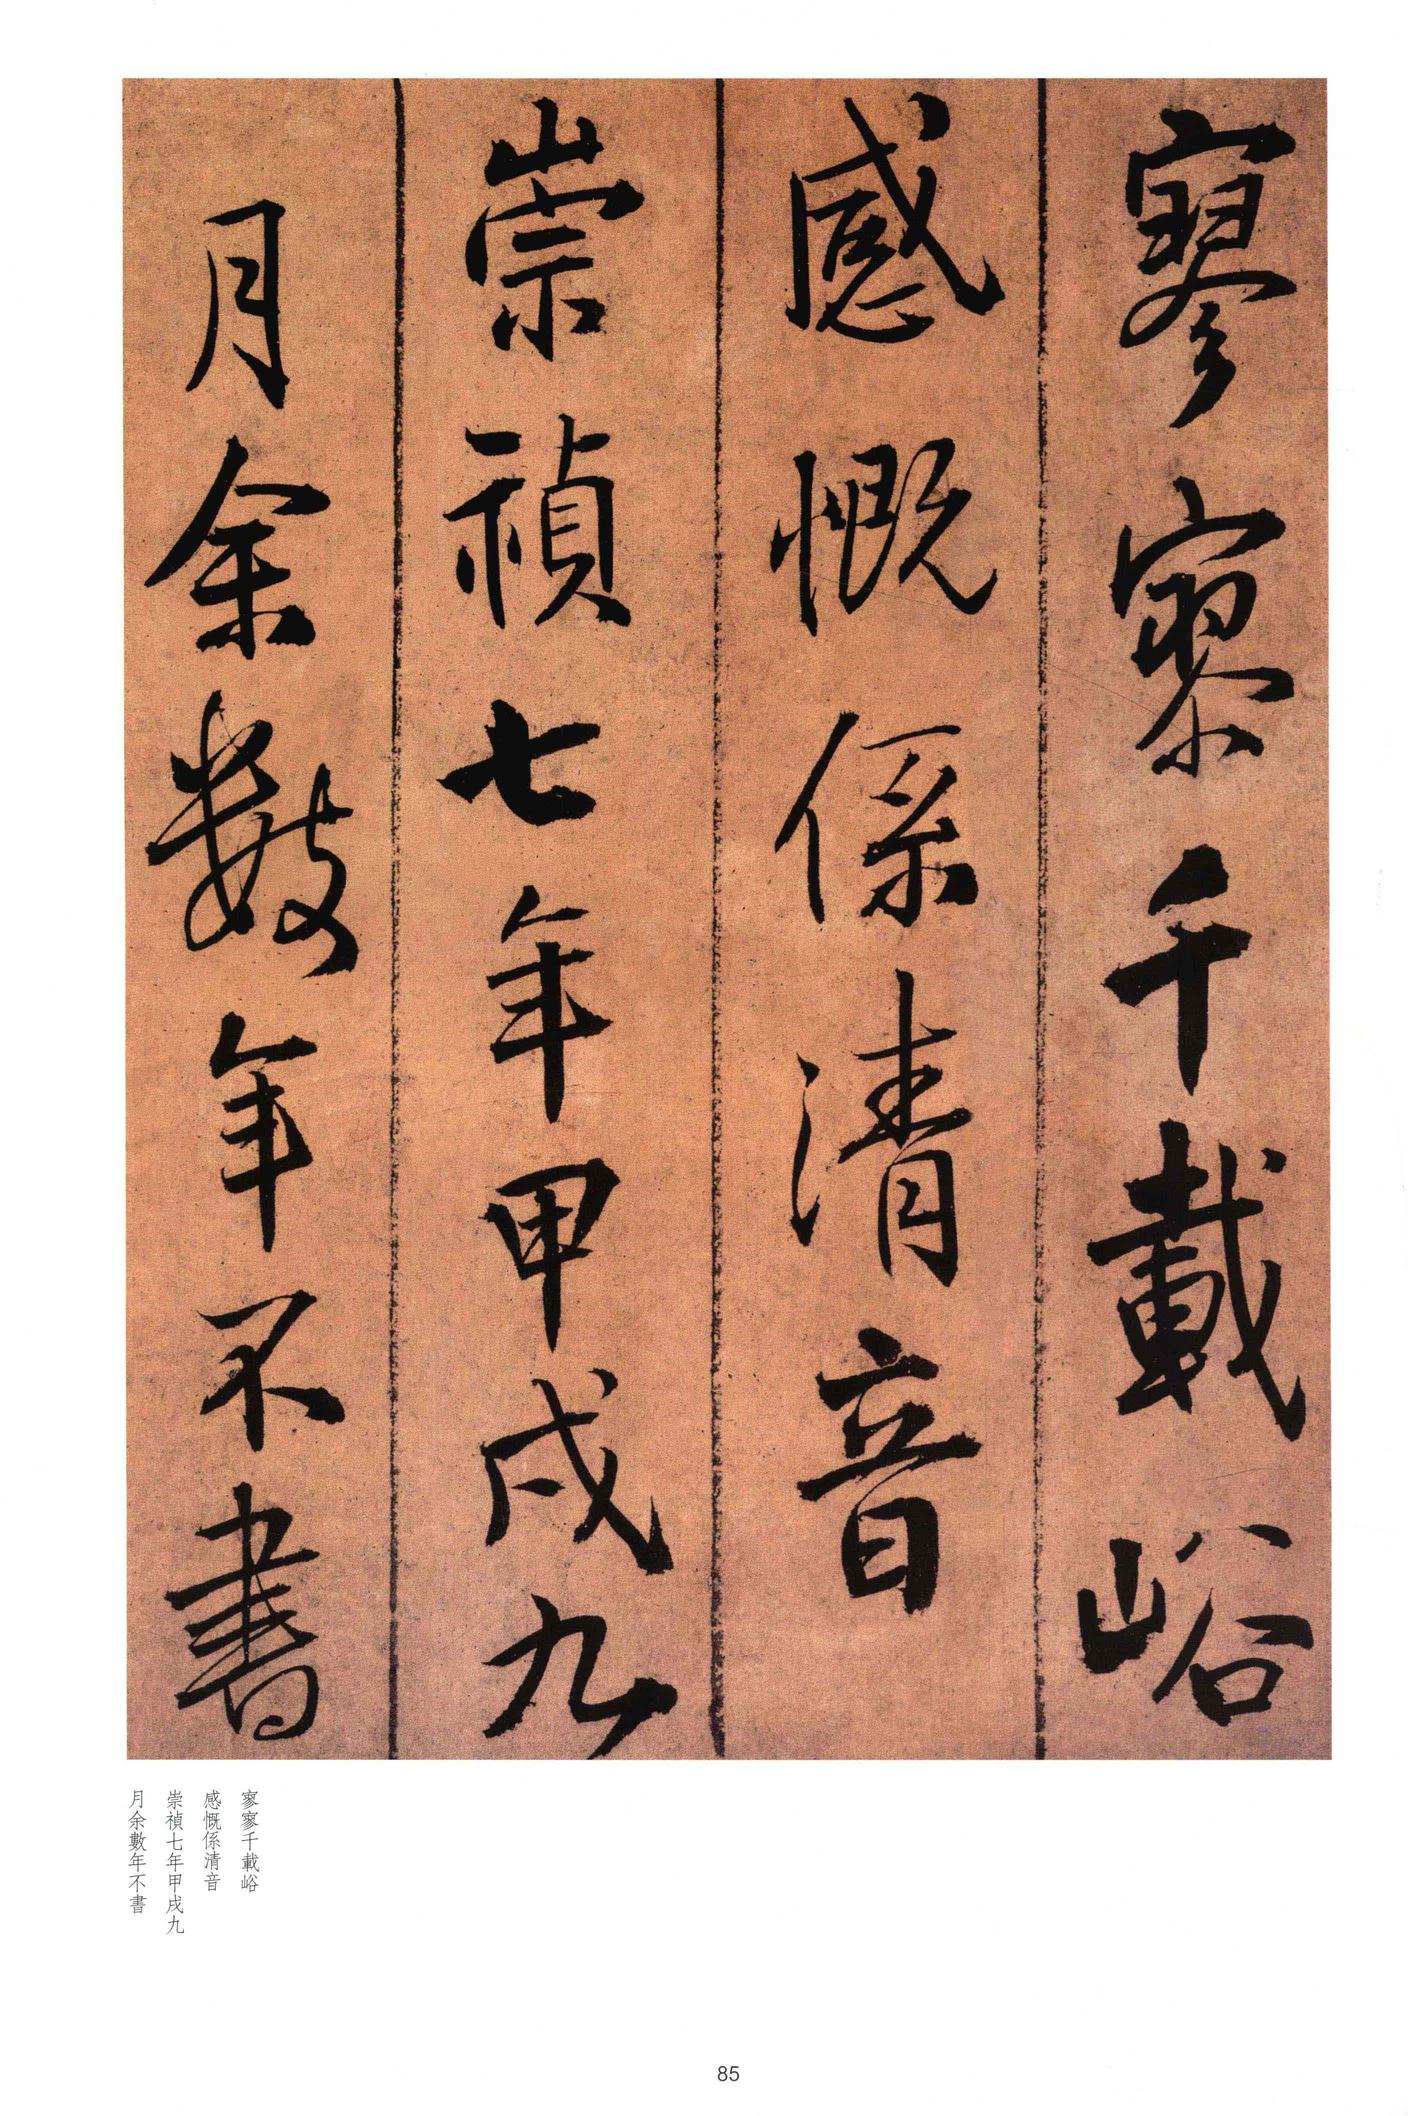 寥寥千載峪
感慨係清音
崇禎七年甲戌九
月余數年不書
寥寥千載峪
感慨係清音
崇禎七年甲戌九
月余數年不書
85